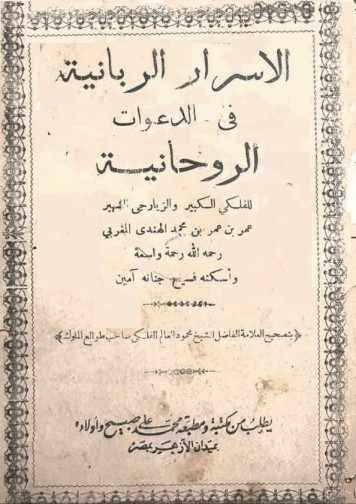 الاسرار الربانية
فى الدعوات
الروحانية
للفلكي الكبير والزيارجى الشهير
عمر بن عمر بن محمد الهندى المغربي
رحمه الله رحمة واسعة
وأسكنه فسيح جنانه آمين
﴿ بتصحيح العلامة الفاضل الشيخ محمود العالم الفلكى صاحب طوالع الملوك ﴾
يطلب من مكتبة ومطبعة محمد على صبيح وأولاده
بميدان الأزهر بمصر